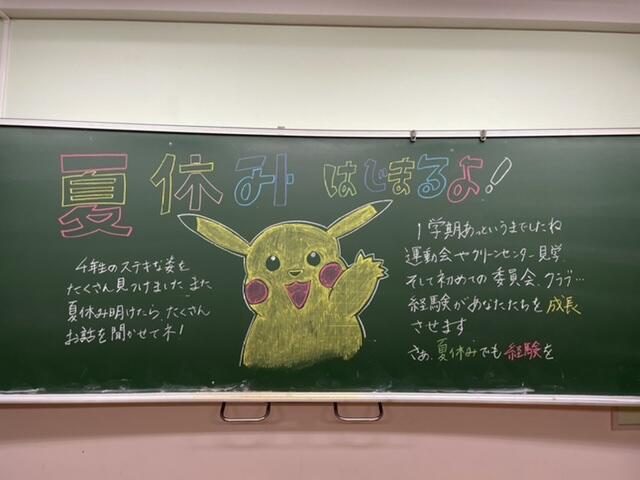 夏休みはじまるよ!
4年生のステキな姿を
たくさん見つけました。また
夏休み明けたら、たくさん
お話を聞かせてネ!
1学期あっというまでしたね
運動会やクリーンセンター見学、
そして初めての委員会、クラブ…
経験があなたたちを成長
させます
さぁ、夏休みでも経験を